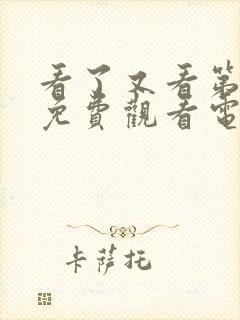 看了又看第
免費觀看電
卡薩托